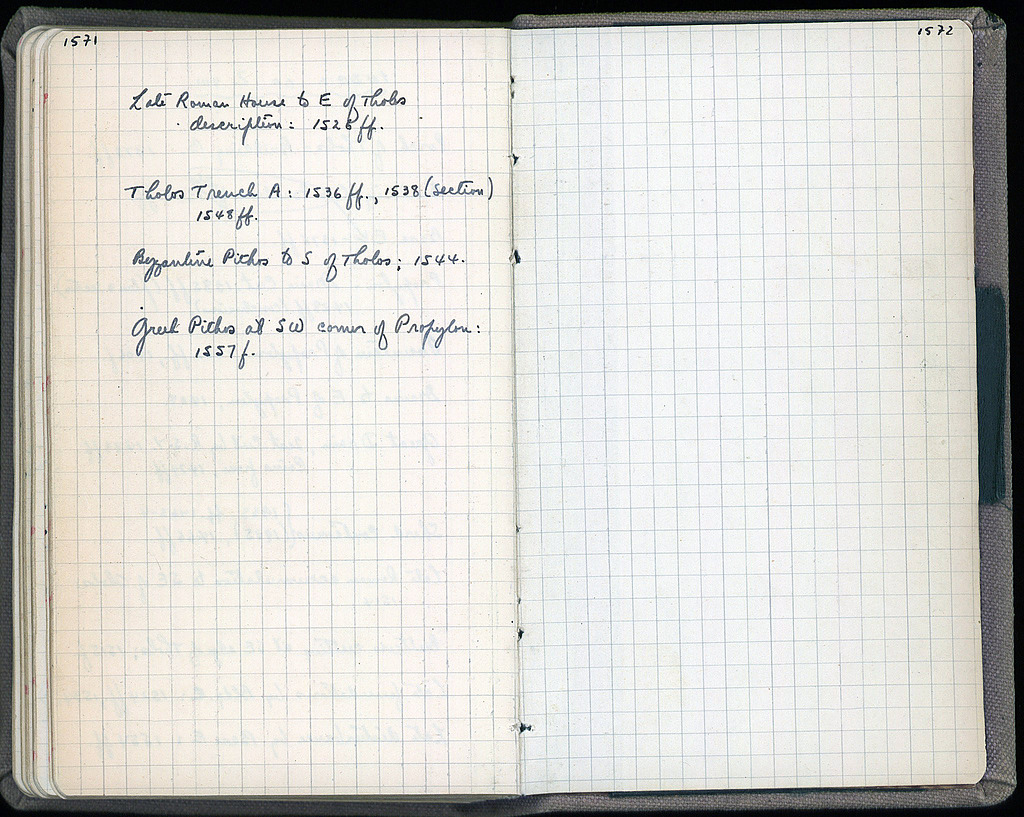 1571
Late Roman House to E of Tholos
description: 1526 ff.
Tholos Trench A: 1536 ff., 1538 (section)
1548 ff.
Byzantine Pithos to S of Tholos; 1544.
Greek Pithos at SW corner of Propylon:
1557 f.
1572